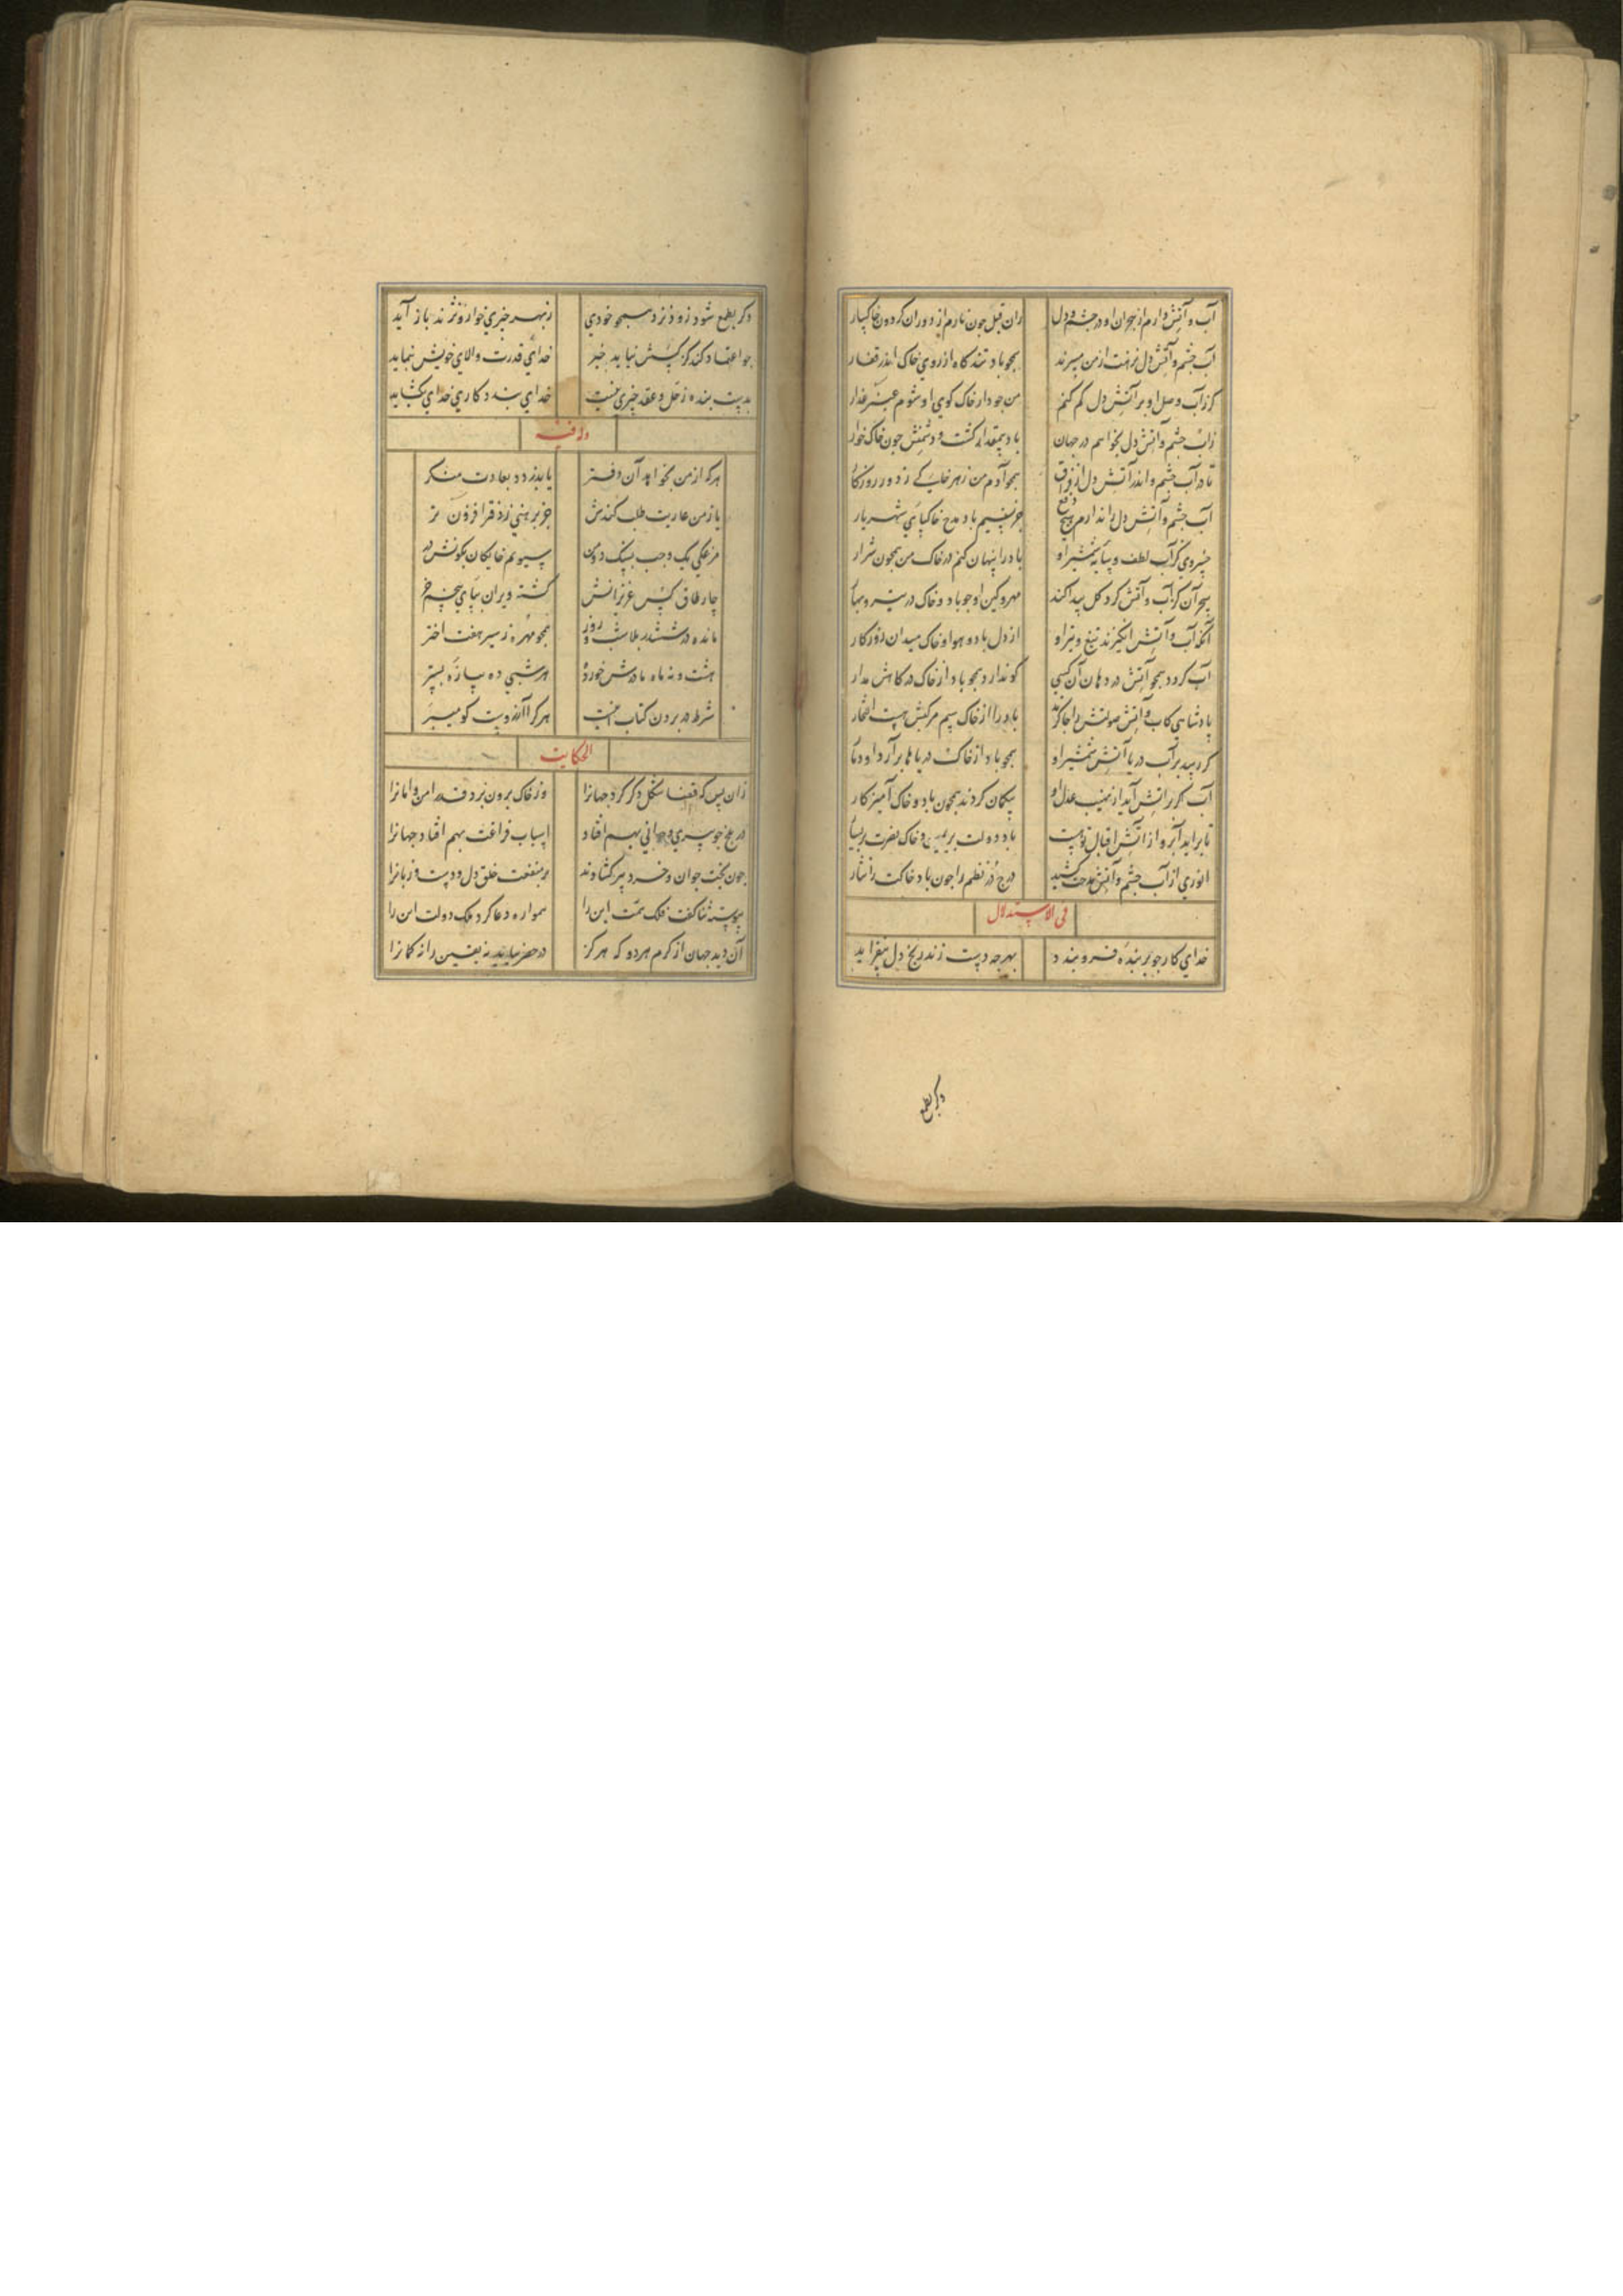 آب و آتش دارم از هجران او در چشم و دل زان قبل چون نادم از دوران گردون خاکسار
آب چشم و آتش دل نزهت از من میبرند همچو باد تند کاه از روی خاک اندر قفار
کر زآب وصل او بر آتش دل کم کنم من جو دار خاک کوی او شوم عنبر عذار
زآب چشم و آتش دل نخواهم در جهان باد بیمقدار کشت و دشمنش چون خاک خوار
تا در آب چشم و اندر آتش دل از فراق همجو آدم من زهر خاکی ز دور روزکار
آب چشم و آتش دل را ندارم دفع هیچ جز نسیم باد مدح خاکپای شهریار
خسروی کز آب لطف و شمشیر او باد را پنهان کنم در خاک من همچون شرار
بحر آن کز آب و آتش کرد کل پیدا کند مهر و کین او جو باد و خاک در
آنکه آب و آتش انکیزند تیغ و تیر او از دل باد و هوا و خاک میدان روز کار
آب کردد همجو آتش در دهان آن کسی کو ندارد همجو باد از خاک درکاهش مدار
پادشاهی کاب و آتش صولتش را جاکرند باد را از خاک سم مرکبش هست افتخار
کر رسد بر آب دریا آتش شمشیر او همجو باد از خاک دریاها برآرد او دمار
آب کر بر آتش آید از نهیب عدل او پیکمان کردند همچون باد و خاک آمیزکار
تا برآید آبرو از آتش اقبال تو هست باد دولت بر یمین و خاک نصرت بر یسار
انوری از آب چشم و آتش مدحت کشید درج در نظم را جون باد خاکت را نثار
فی الاستدلال
خدای کار جو بر بنده فرو بندد بهر جه دست زند رنج دل بیفزاید
وکر بطمع
وکر بطمع شود زود نزد همجو خودی ز بهر جیزی خوار و نژند باز آید
جو اعتقاد کند کز کسش نیاید خیر خدای قدرت والای خویش بنماید
بدست بنده ز حل و عقد جیزی نیست خدای بندد کاری خدای بکشاید
وله فیه
هرکه از من بخواهد آن دفتر یا بدزدد بعادت منکر
یا ز من عاریت طلب کندش
کشته ویران بپای
مانده در ششدر بلا شب و روز همجو مهره ز سیر هفت اختر
هر شبی ده پیازه
شرط در بردن کتاب اینست هر کرا آرزوست کو میبر
الحکایت
زان پس که قضا شکل دکر کرد جهانرا وز خاک برون برد قدر امن و امانرا
در بلخ جو پیری و جوانی بهم افتاد اسباب فراغت بهم افتاد جهانرا
جون بخت جوان و خرد پیر کشادند بر منفعت خلق دل و دست و زبانرا
پیوسته ثنا کفت فلک همت این را همواره دعا کرد ملک دولت این را
آن دید جهان از کرم هردو که هرکز در حصر نیاید نه یقین را نه کمانرا